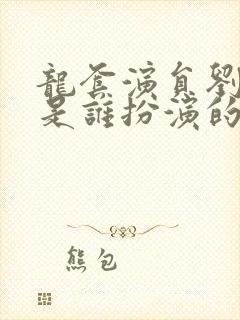 龍套演員劉
是誰扮演的
熊包